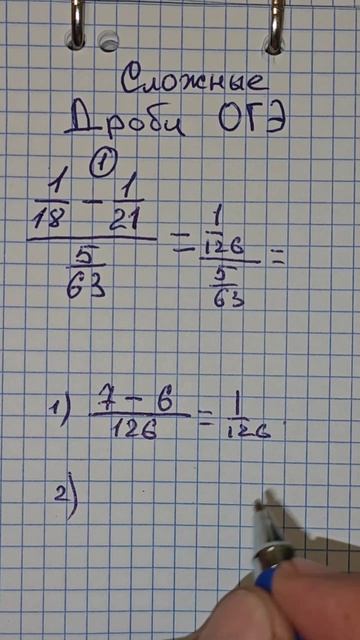 Сложные
Дроби ОГЭ
①
1/18 - 1/21 / 5/63 = 1/126 / 5/63 =
1) 7 - 6 / 126 = 1/126
2)